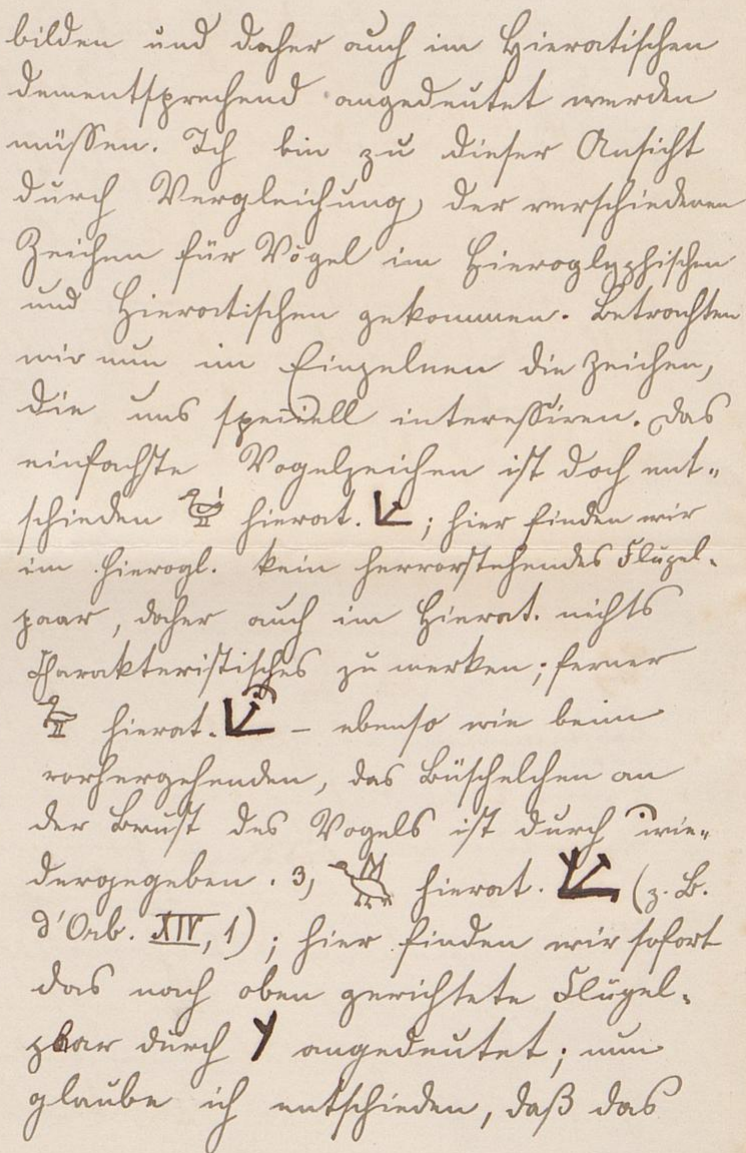 bilden und daher auch im Hieratischen
dementsprechend angedeutet werden
müssen. Ich bin zu dieser Ansicht
durch Vergleichung der verschiedenen
Zeichen für Vögel im Hieroglyphischen
und Hieratischen gekommen. Betrachten
wir nun im Einzelnen die Zeichen,
die uns speciell interessiren. Das
einfachste Vogelzeichen ist doch ent-
schieden hierat. ; hier finden wir
im hierogl. kein hervorstehendes Flügel-
paar, daher auch im Hierat. nichts
Charakteristisches zu merken; ferner
hierat. – ebenso wie beim
vorhergehenden, das Büschelchen an
der Brust des Vogels ist durch wie-
dergegeben. 3, hierat. (z. B.
d'Orb. XIV, 1); hier finden wir sofort
das nach oben gerichtete Flügel-
paar durch angedeutet; nun
glaube ich entschieden, daß das